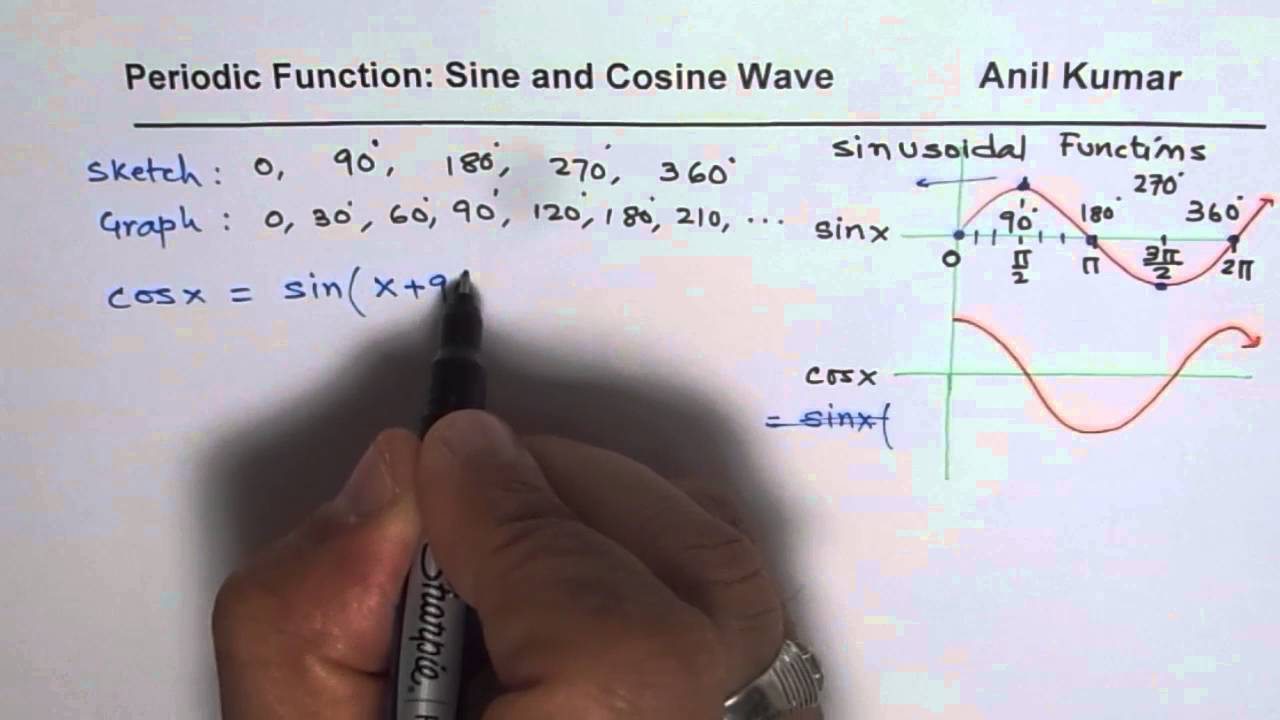 Periodic Function: Sine and Cosine Wave
Anil Kumar
sketch: 0, 90°, 180°, 270°, 360°
Graph: 0, 30°, 60°, 90°, 120°, 180°, 210, ...
cosx = sin(x+9
sinusoidal Functims
270°
90° 180° 360°
sinx
0 π/2 π 3π/2 2π
cosx
= sinx(
Sharpie.